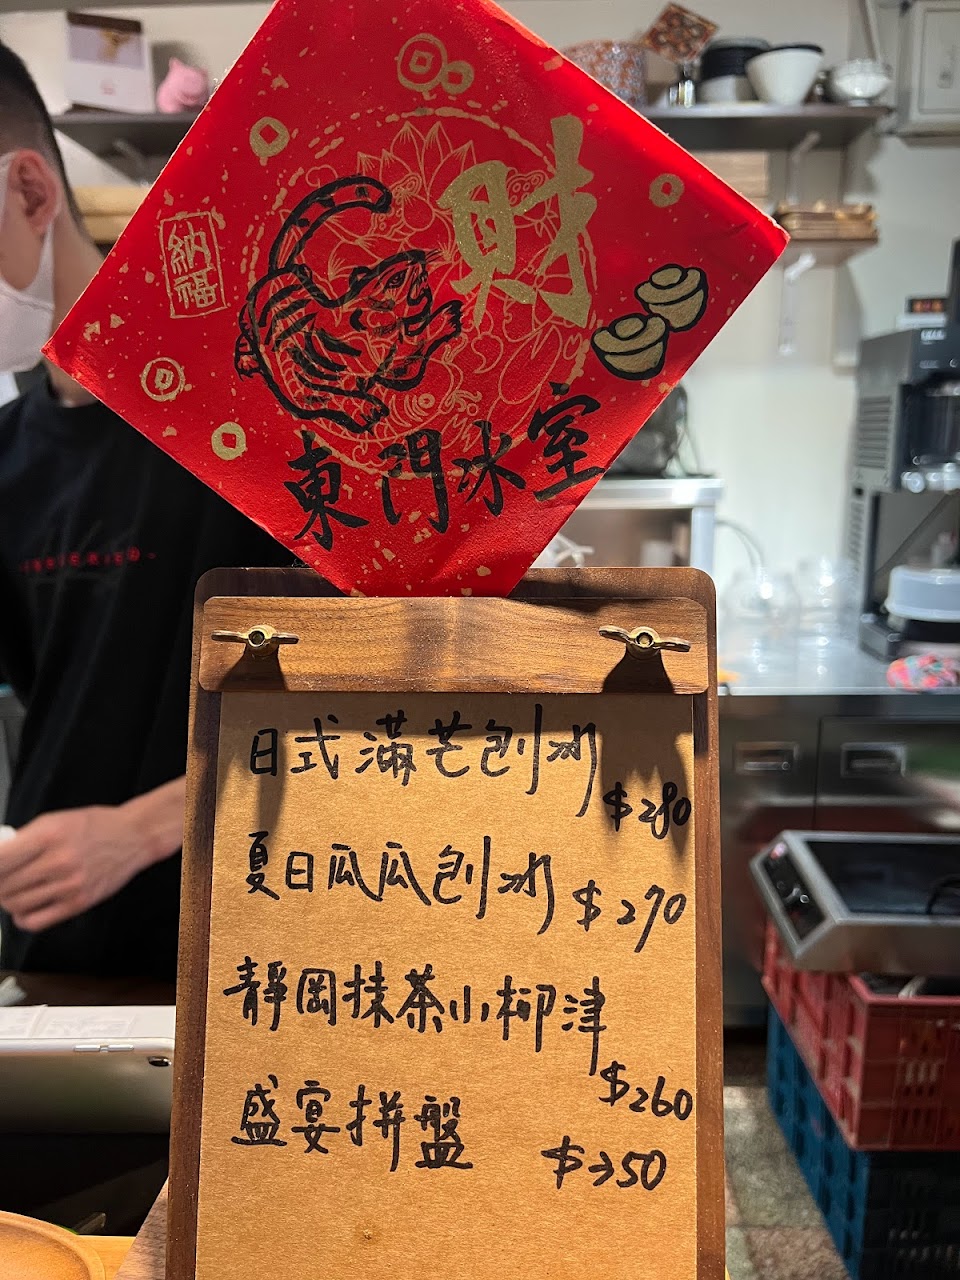 財
納福
東門冰室
日式滿芒刨冰
$280
夏日瓜瓜刨冰
$270
靜岡抹茶小柳津
$260
盛宴拼盤
$350